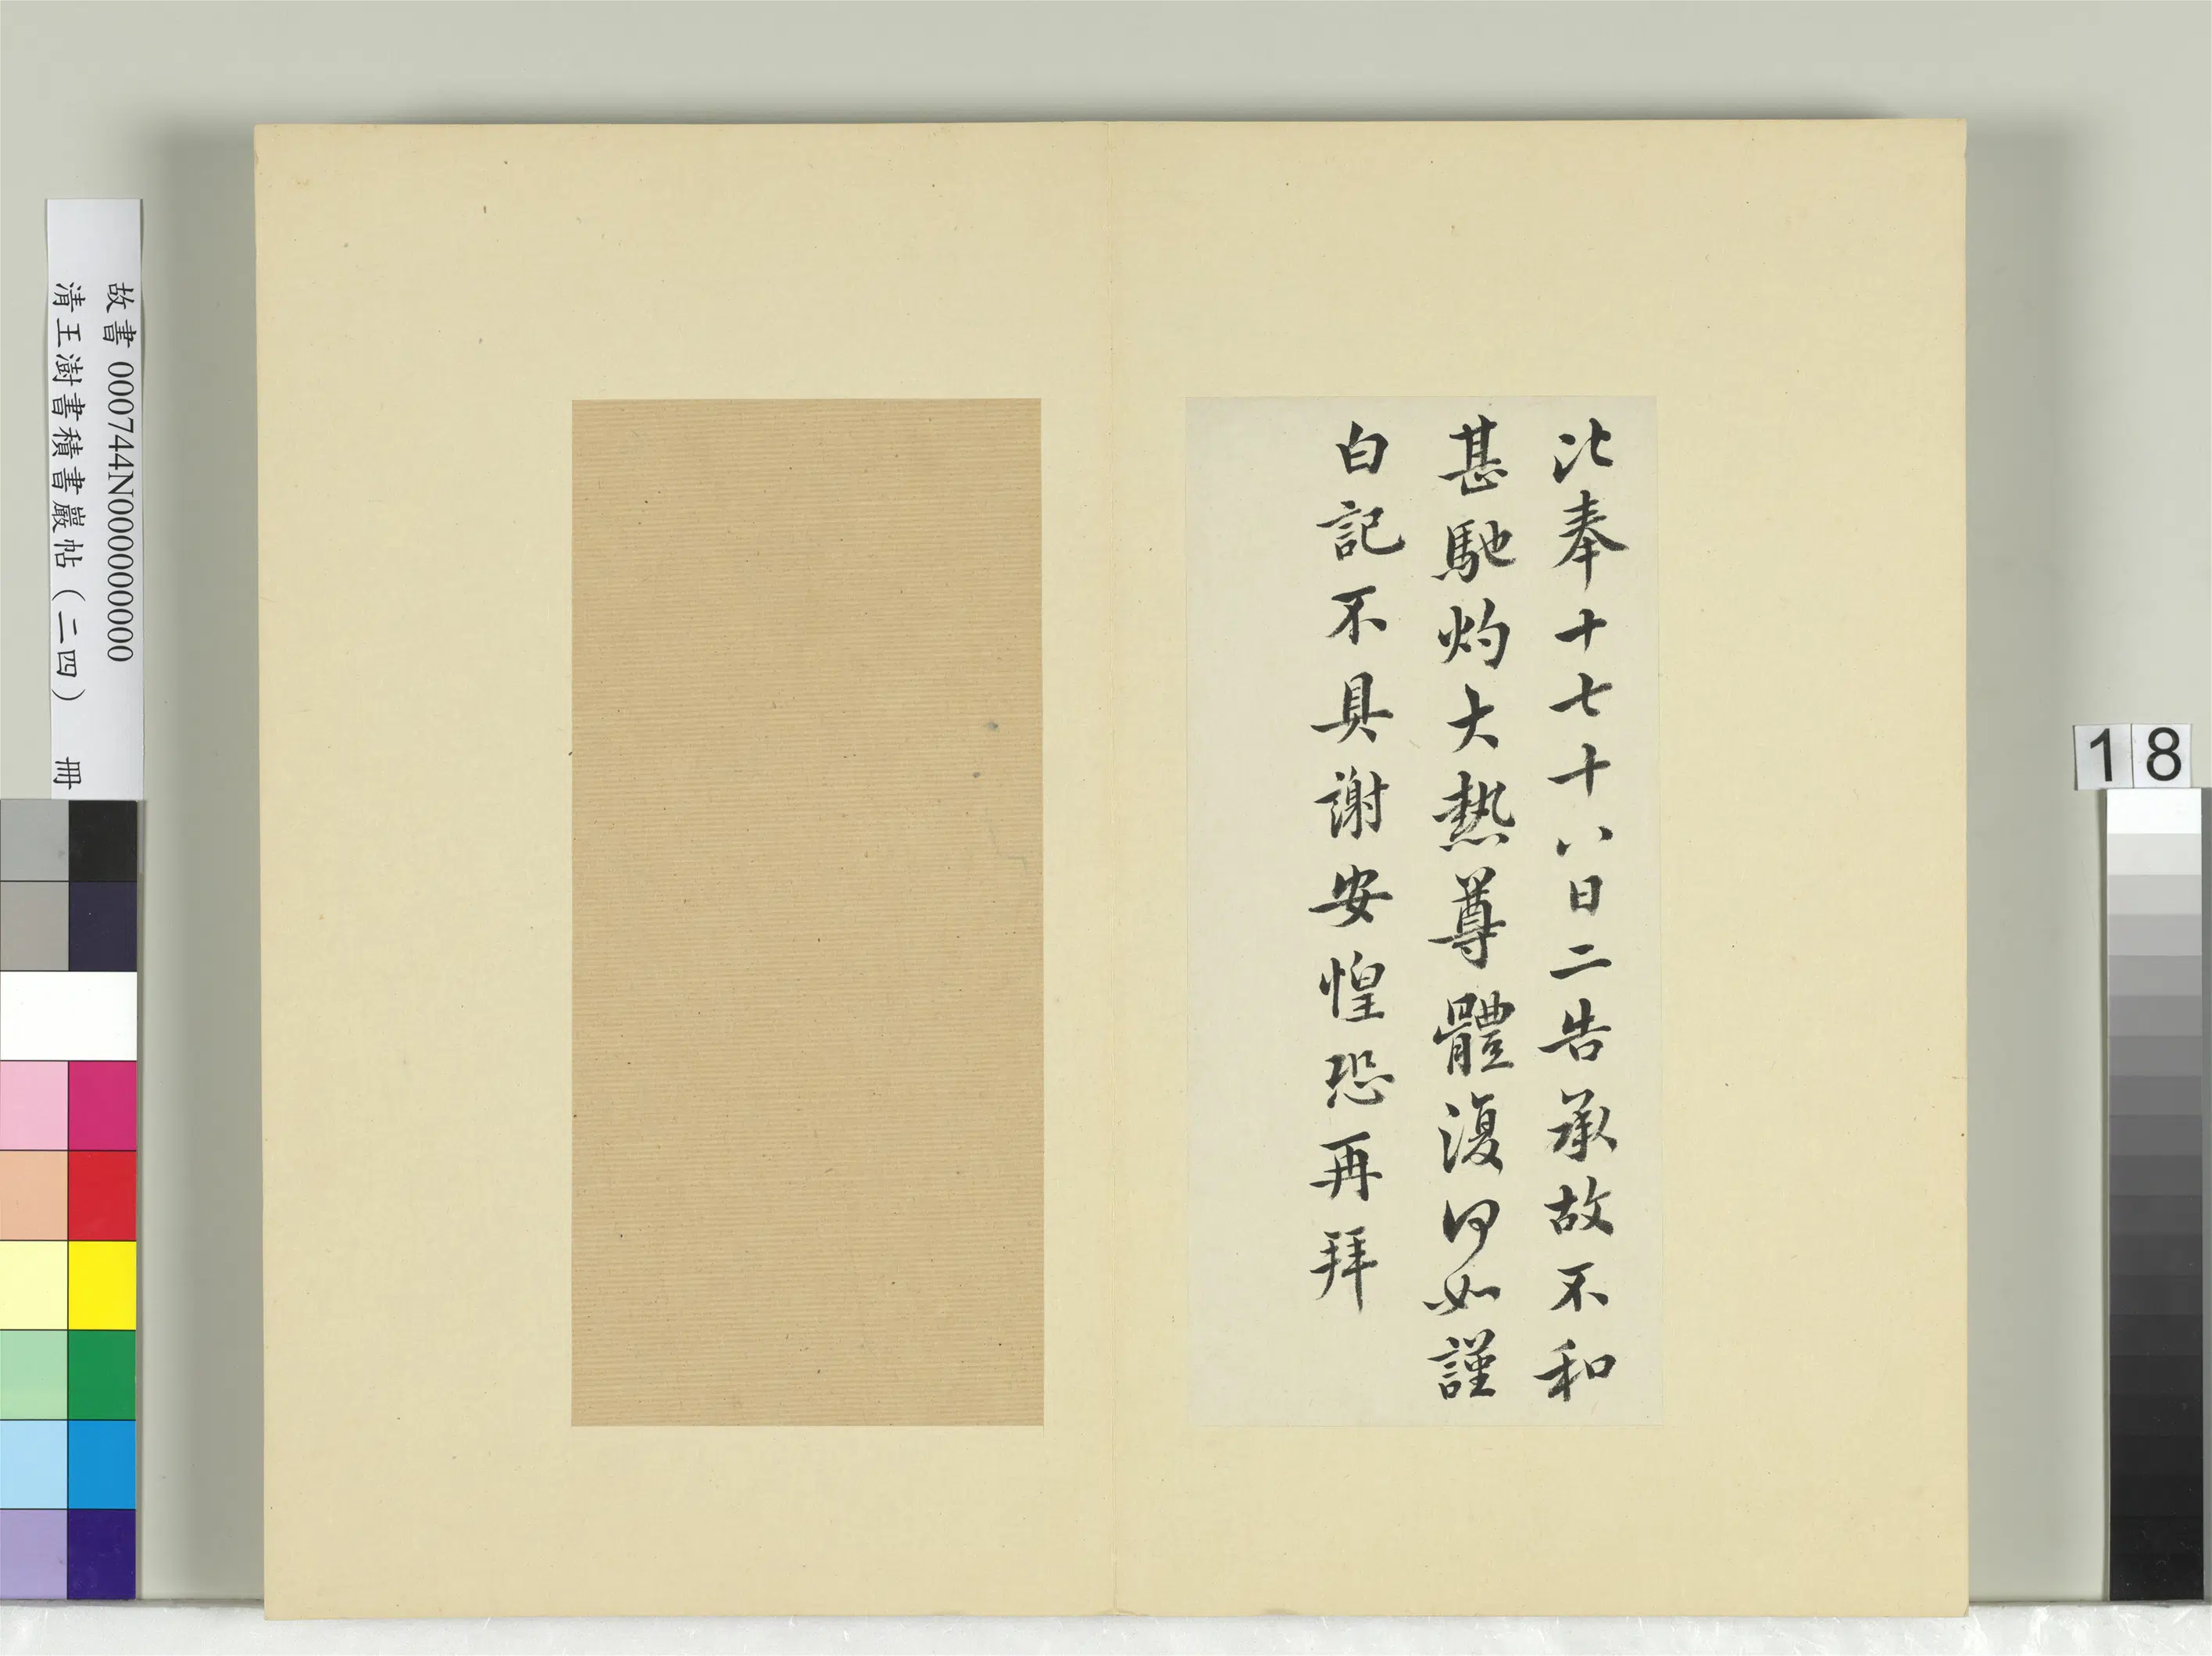 此奉十七十八日二告承故不和
甚馳灼大熱尊體復何如謹
白記不具謝安惶恐再拜
故書 000744N000000000
清王澍書積書巖帖(二四) 冊
18